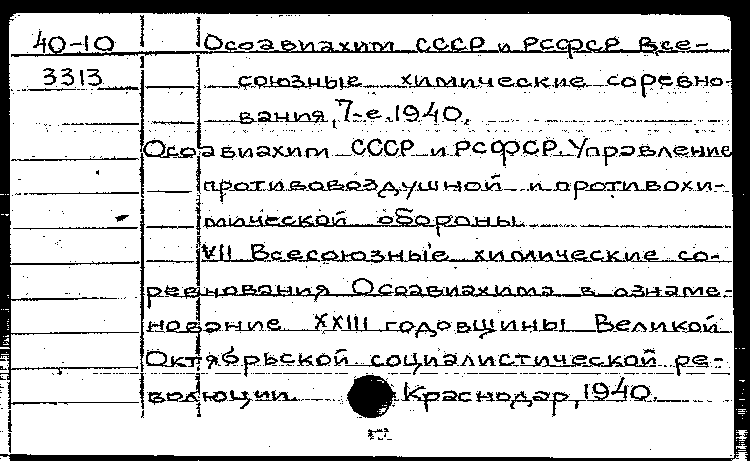 40-10 Осоавиахим СССР и РСФСР Все-
3313 союзные химические соревно-
вания, 7-е. 1940.
Осоавиахим СССР и РСФСР. Управление
противовоздушной и противохи-
мической обороны.
VII Всесоюзные химические со-
ревнования Осоавиахима в ознаме-
нование XXIII годовщины Великой
Октябрьской социалистической ре-
волюции. Краснодар, 1940.